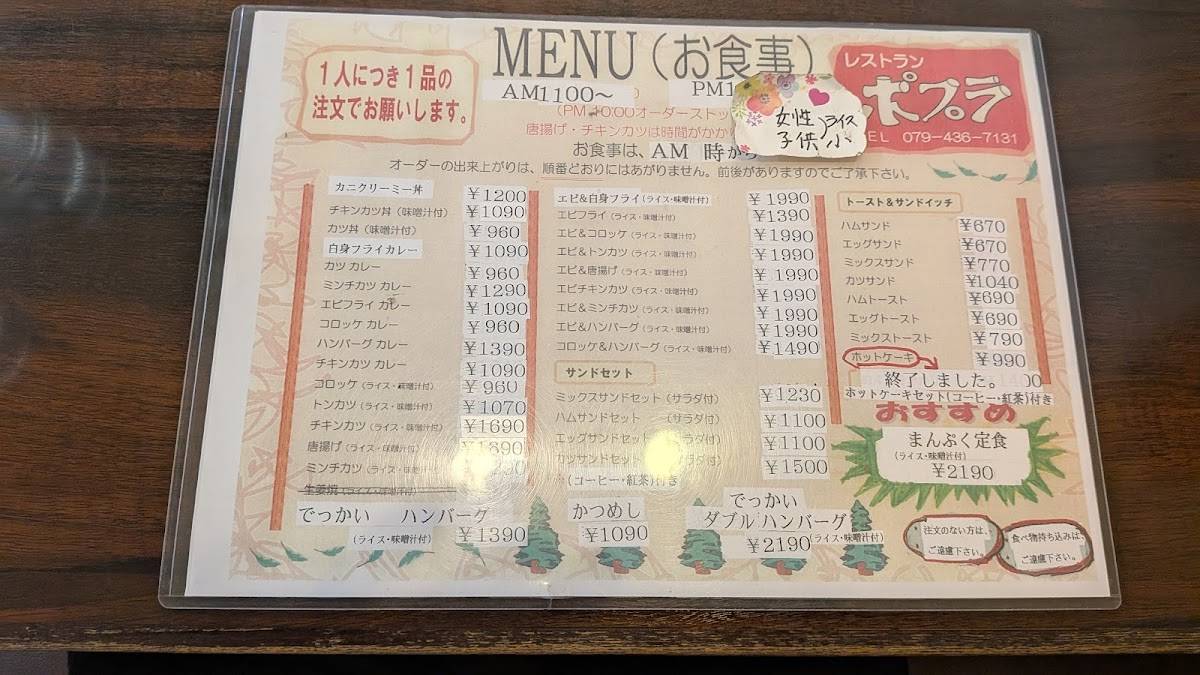 MENU(お食事)
1人につき1品の
注文でお願いします。
AM1100〜
PM1
(PM 10:00オーダーストッ
唐揚げ・チキンカツは時間がかか
お食事は、AM 時から
女性 子供 ライス小
レストラン
ポプラ
TEL 079-436-7131
オーダーの出来上がりは、順番どおりにはあがりません。前後がありますのでご了承下さい。
カニクリーミー丼 ¥1200
チキンカツ丼（味噌汁付） ¥1090
カツ丼（味噌汁付） ¥960
白身フライカレー ¥1090
カツ カレー ¥960
ミンチカツ カレー ¥1290
エビフライ カレー ¥1090
コロッケ カレー ¥960
ハンバーグ カレー ¥1390
チキンカツ カレー ¥1090
コロッケ（ライス・味噌汁付） ¥960
トンカツ（ライス・味噌汁付） ¥1070
チキンカツ（ライス・味噌汁付） ¥1690
唐揚げ（ライス・味噌汁付）
ミンチカツ（ライス・味噌汁付）
生姜焼（ライス・味噌汁付）
でっかい ハンバーグ
（ライス・味噌汁付） ¥1390
エビ&白身フライ（ライス・味噌汁付） ¥1990
エビフライ（ライス・味噌汁付） ¥1390
エビ&コロッケ（ライス・味噌汁付） ¥1990
エビ&トンカツ（ライス・味噌汁付） ¥1990
エビ&唐揚げ（ライス・味噌汁付） ¥1990
エビチキンカツ（ライス・味噌汁付） ¥1990
エビ&ミンチカツ（ライス・味噌汁付） ¥1990
エビ&ハンバーグ（ライス・味噌汁付） ¥1990
コロッケ&ハンバーグ（ライス・味噌汁付） ¥1490
サンドセット
ミックスサンドセット（サラダ付） ¥1230
ハムサンドセット （サラダ付） ¥1100
エッグサンドセット（サラダ付） ¥1100
カツサンドセット （サラダ付） ¥1500
（コーヒー・紅茶）付き
かつめし
¥1090
でっかい
ダブルハンバーグ
¥2190（ライス・味噌汁付）
トースト&サンドイッチ
ハムサンド ¥670
エッグサンド ¥670
ミックスサンド ¥770
カツサンド ¥1040
ハムトースト ¥690
エッグトースト ¥690
ミックストースト ¥790
ホットケーキ ¥990
終了しました。
ホットケーキセット（コーヒー・紅茶）付き
おすすめ
まんぷく定食
（ライス・味噌汁付）
¥2190
注文のない方は、
ご遠慮下さい。
食べ物持ち込みは、
ご遠慮下さい。